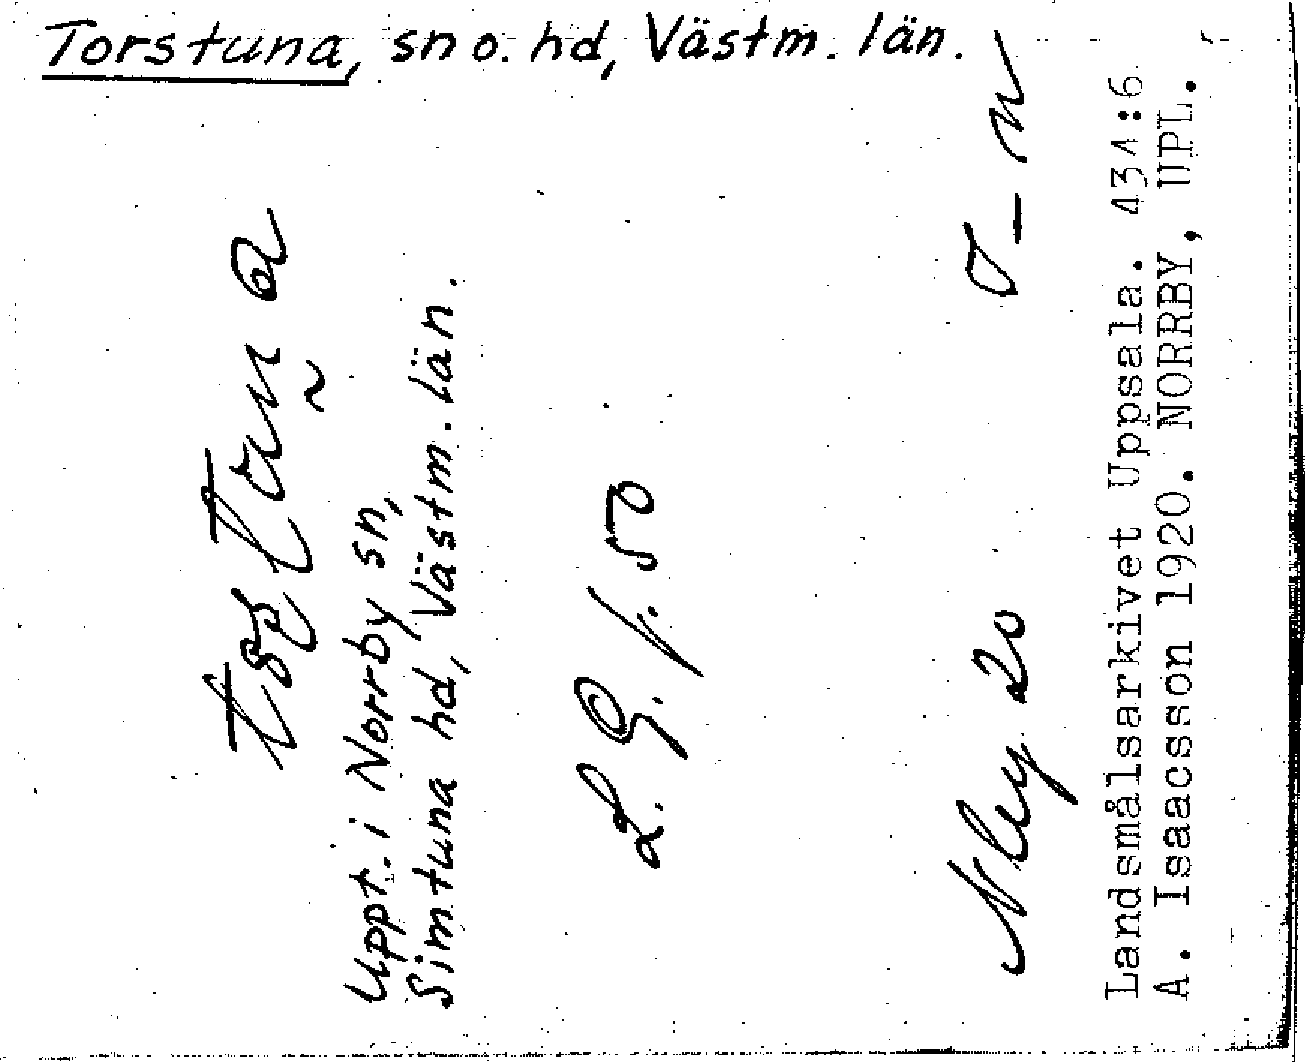 Torstuna, sn o. hd, Västm. län.
Uppt. i Norrby sn,
Simtuna hd, Västm. län.
50
20
Landsmålsarkivet Uppsala. 434:6
A. Isaacsson 1920. NORRBY, UPL.